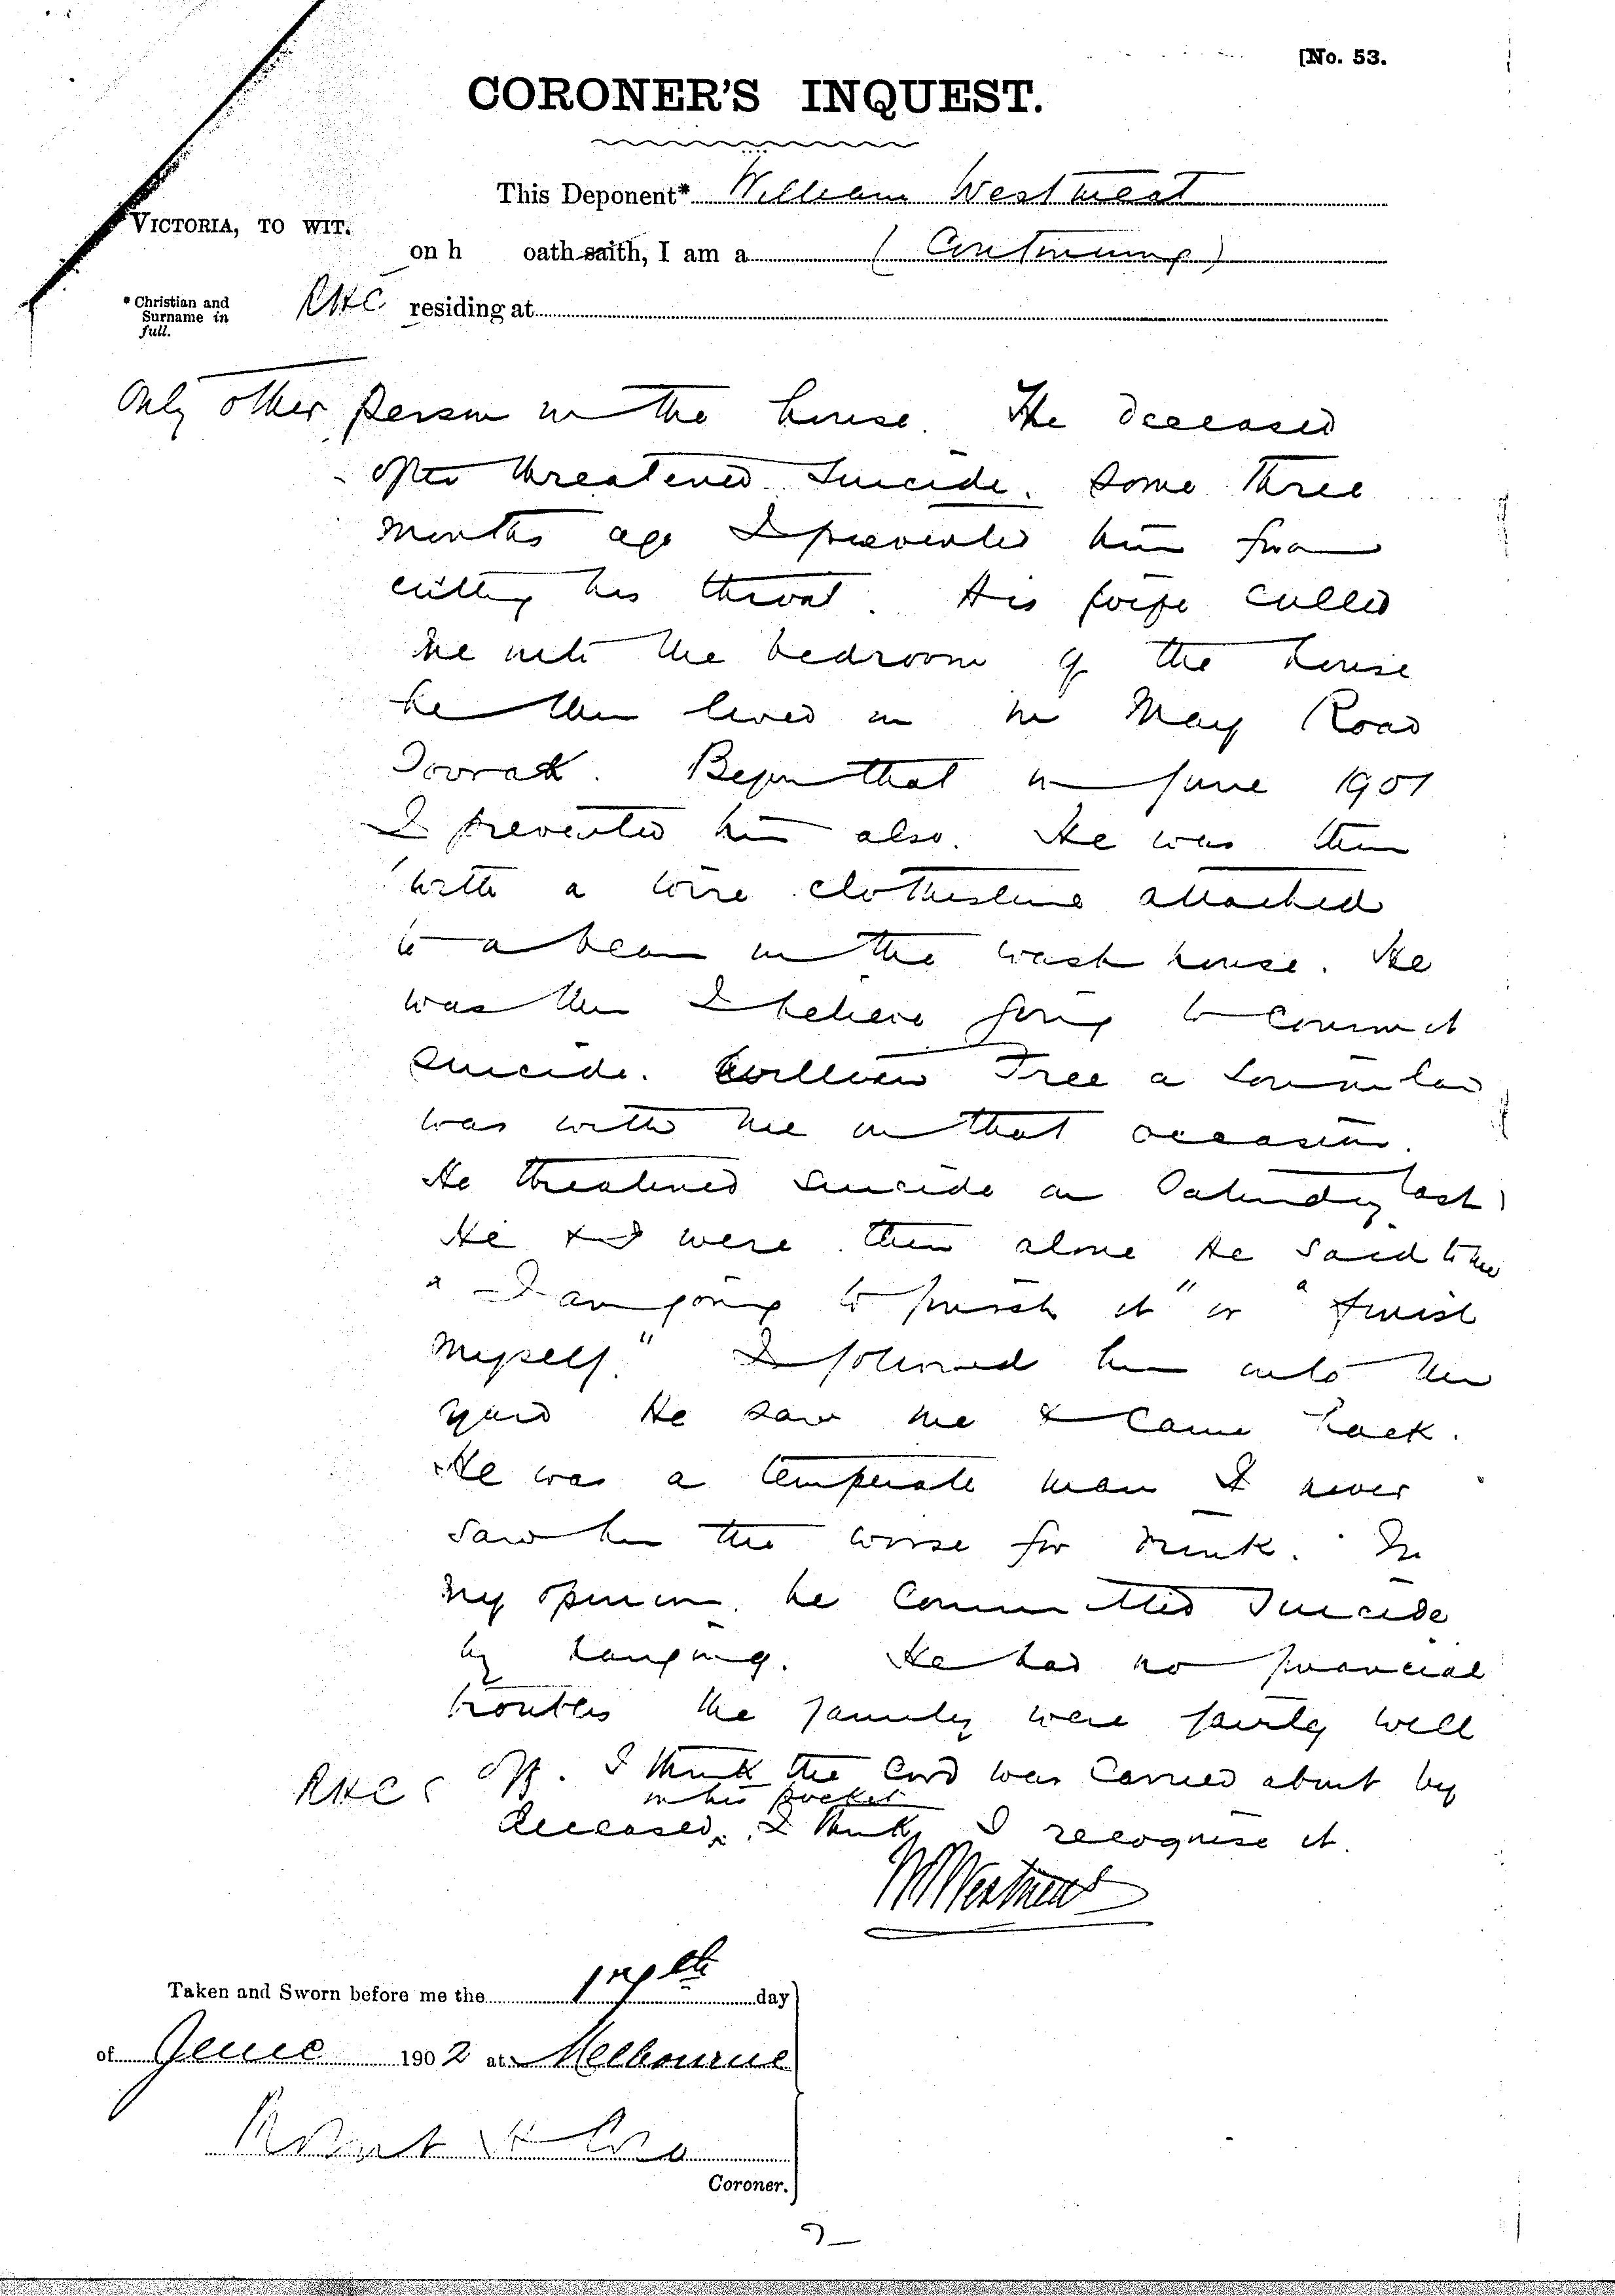 [No. 53.
CORONER'S INQUEST.
This Deponent* William Westmeat
VICTORIA, TO WIT.
on h oath saith, I am a (Continuing)
* Christian and Surname in full.
RHC residing at
Only other person in the house. The deceased
often threatened suicide. Some three
months ago I prevented him from
cutting his throat. His wife called
me into the bedroom of the house
he then lived in in May Road
Toorak. Before that in June 1901
I prevented him also. He was then
with a wire clothesline attached
to a beam in the wash house. He
was then I believe going to commit
suicide. William Tree a son in law
was with me on that occasion.
He threatened suicide on Saturday last
He & I were then alone He said to me
"I am going to finish it" or "finish
myself." I followed him into the
yard He saw me & came back.
He was a temperate man I never
saw him the worse for drink. In
my opinion he committed suicide
by hanging. He had no financial
troubles the family were fairly well
RHC off. I think the cord was carried about by
in his pocket
deceased, I think I recognise it.
W Westmeat
Taken and Sworn before me the 17th day
of June 1902 at Melbourne
Robert H Cole
Coroner.